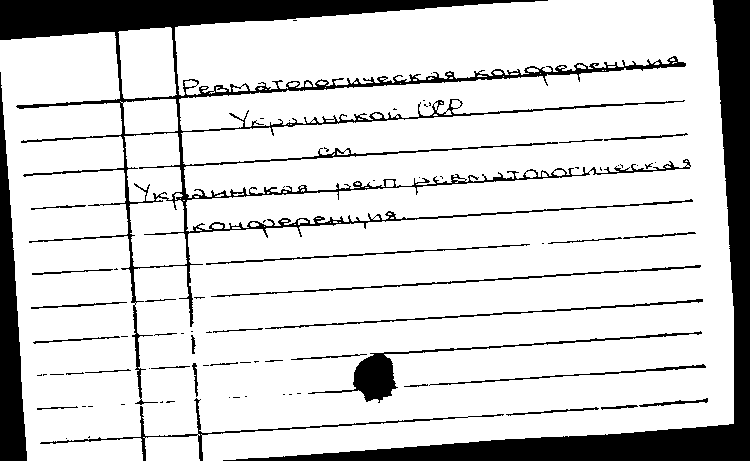 Ревматологическая конференция
Украинской ССР
см.
Украинская респ. ревматологическая
конференция.